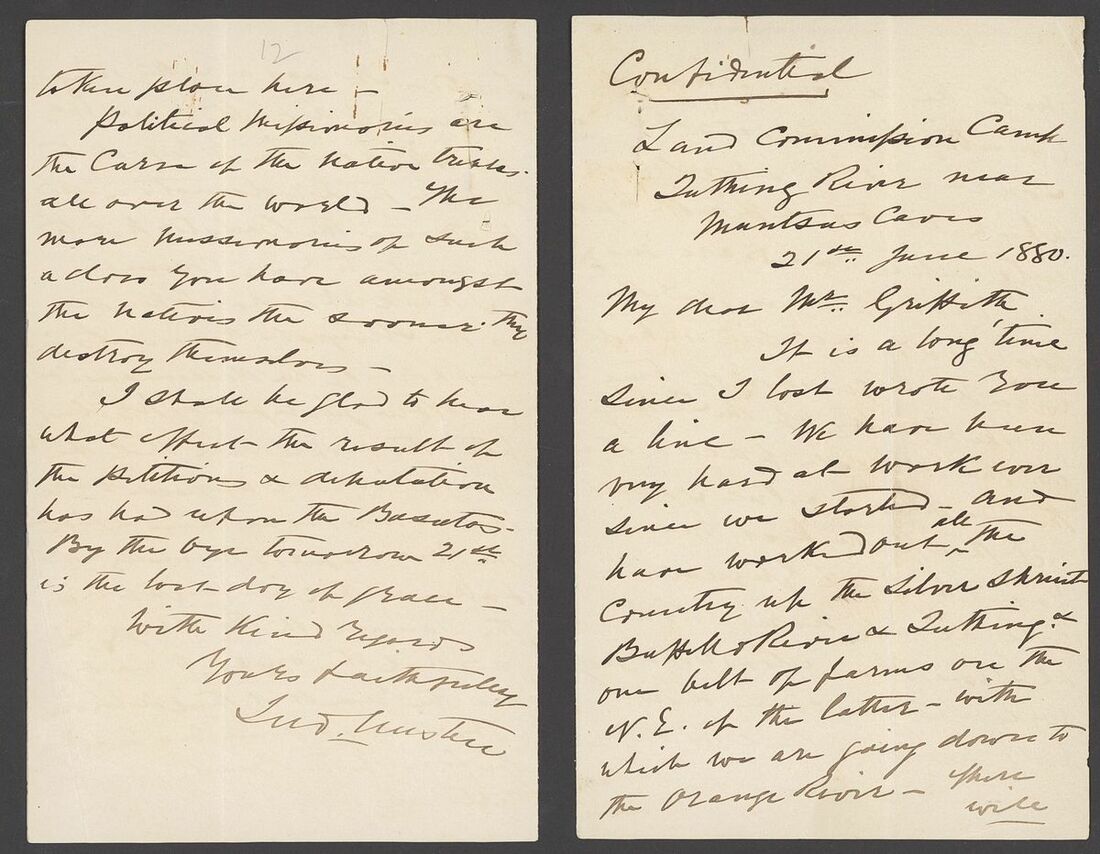 12
taken place here –
Political Missionaries are
the Curse of the Native tribes.
all over the world – The
more Missionaries of such
a class you have amongst
the Natives the sooner they
destroy themselves –
I shall be glad to hear
what effect the result of
the Petitions & deputation
has had upon the Basutos –
By the bye tomorrow 21st
is the last day of grace –
With Kind regards
Yours faithfully
Austen
Confidential
Land Commission Camp
River near
Caves
21st June 1880.
My dear Mr. Griffith
It is a long time
since I last wrote you
a line – We have been
very hard at work ever
since we started – and
have worked out all the
Country up the Silver Spruit
Buffello River &
one belt of farms on the
N.E. of the latter – with
which we are going down to
the Orange River – There
will